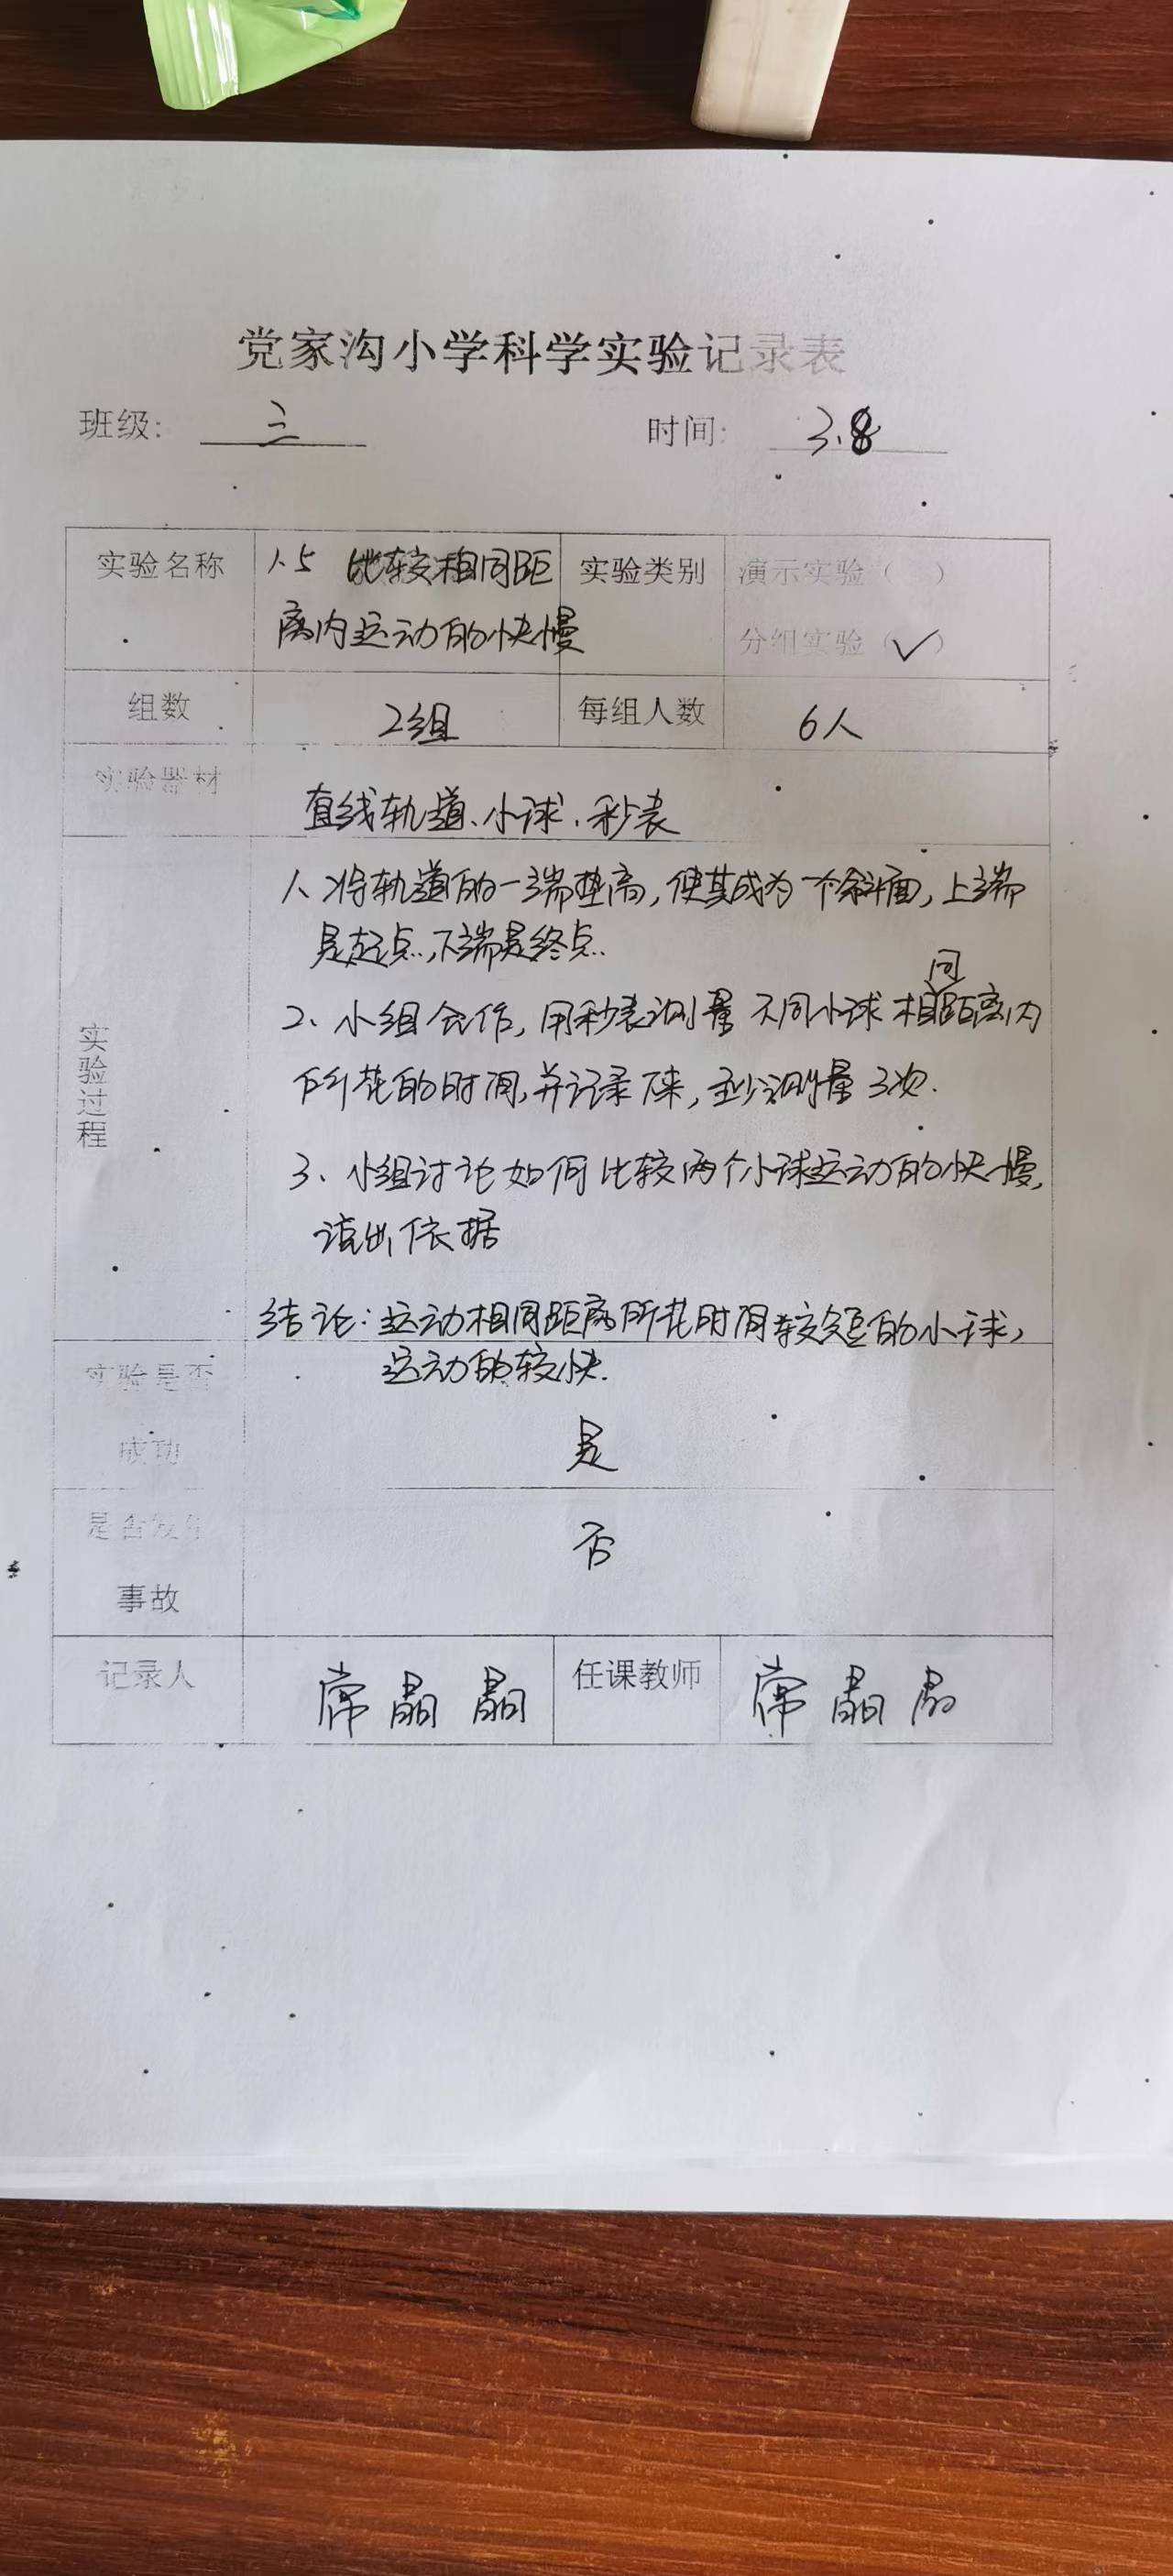 党家沟小学科学实验记录表
班级: 三 时间: 3.8
实验名称 1.5 比较相同距 实验类别 演示实验( )
离内运动的快慢 分组实验(✓)
组数 2组 每组人数 6人
实验器材
直线轨道、小球、秒表
实验过程
1、将轨道的一端垫高,使其成为一个斜面,上端
是起点,下端是终点.
2、小组合作,用秒表测量不同小球相同距离内
所花的时间,并记录下来,至少测量3次.
3、小组讨论如何比较两个小球运动的快慢,
说出依据
结论:运动相同距离所花时间较短的小球,
实验是否 运动的较快.
成功 是
是否发生 否
事故
记录人 常晶晶 任课教师 常晶晶